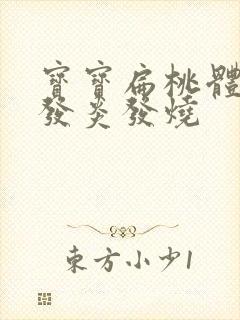 寶寶扁桃體
發炎發燒
東方小少1